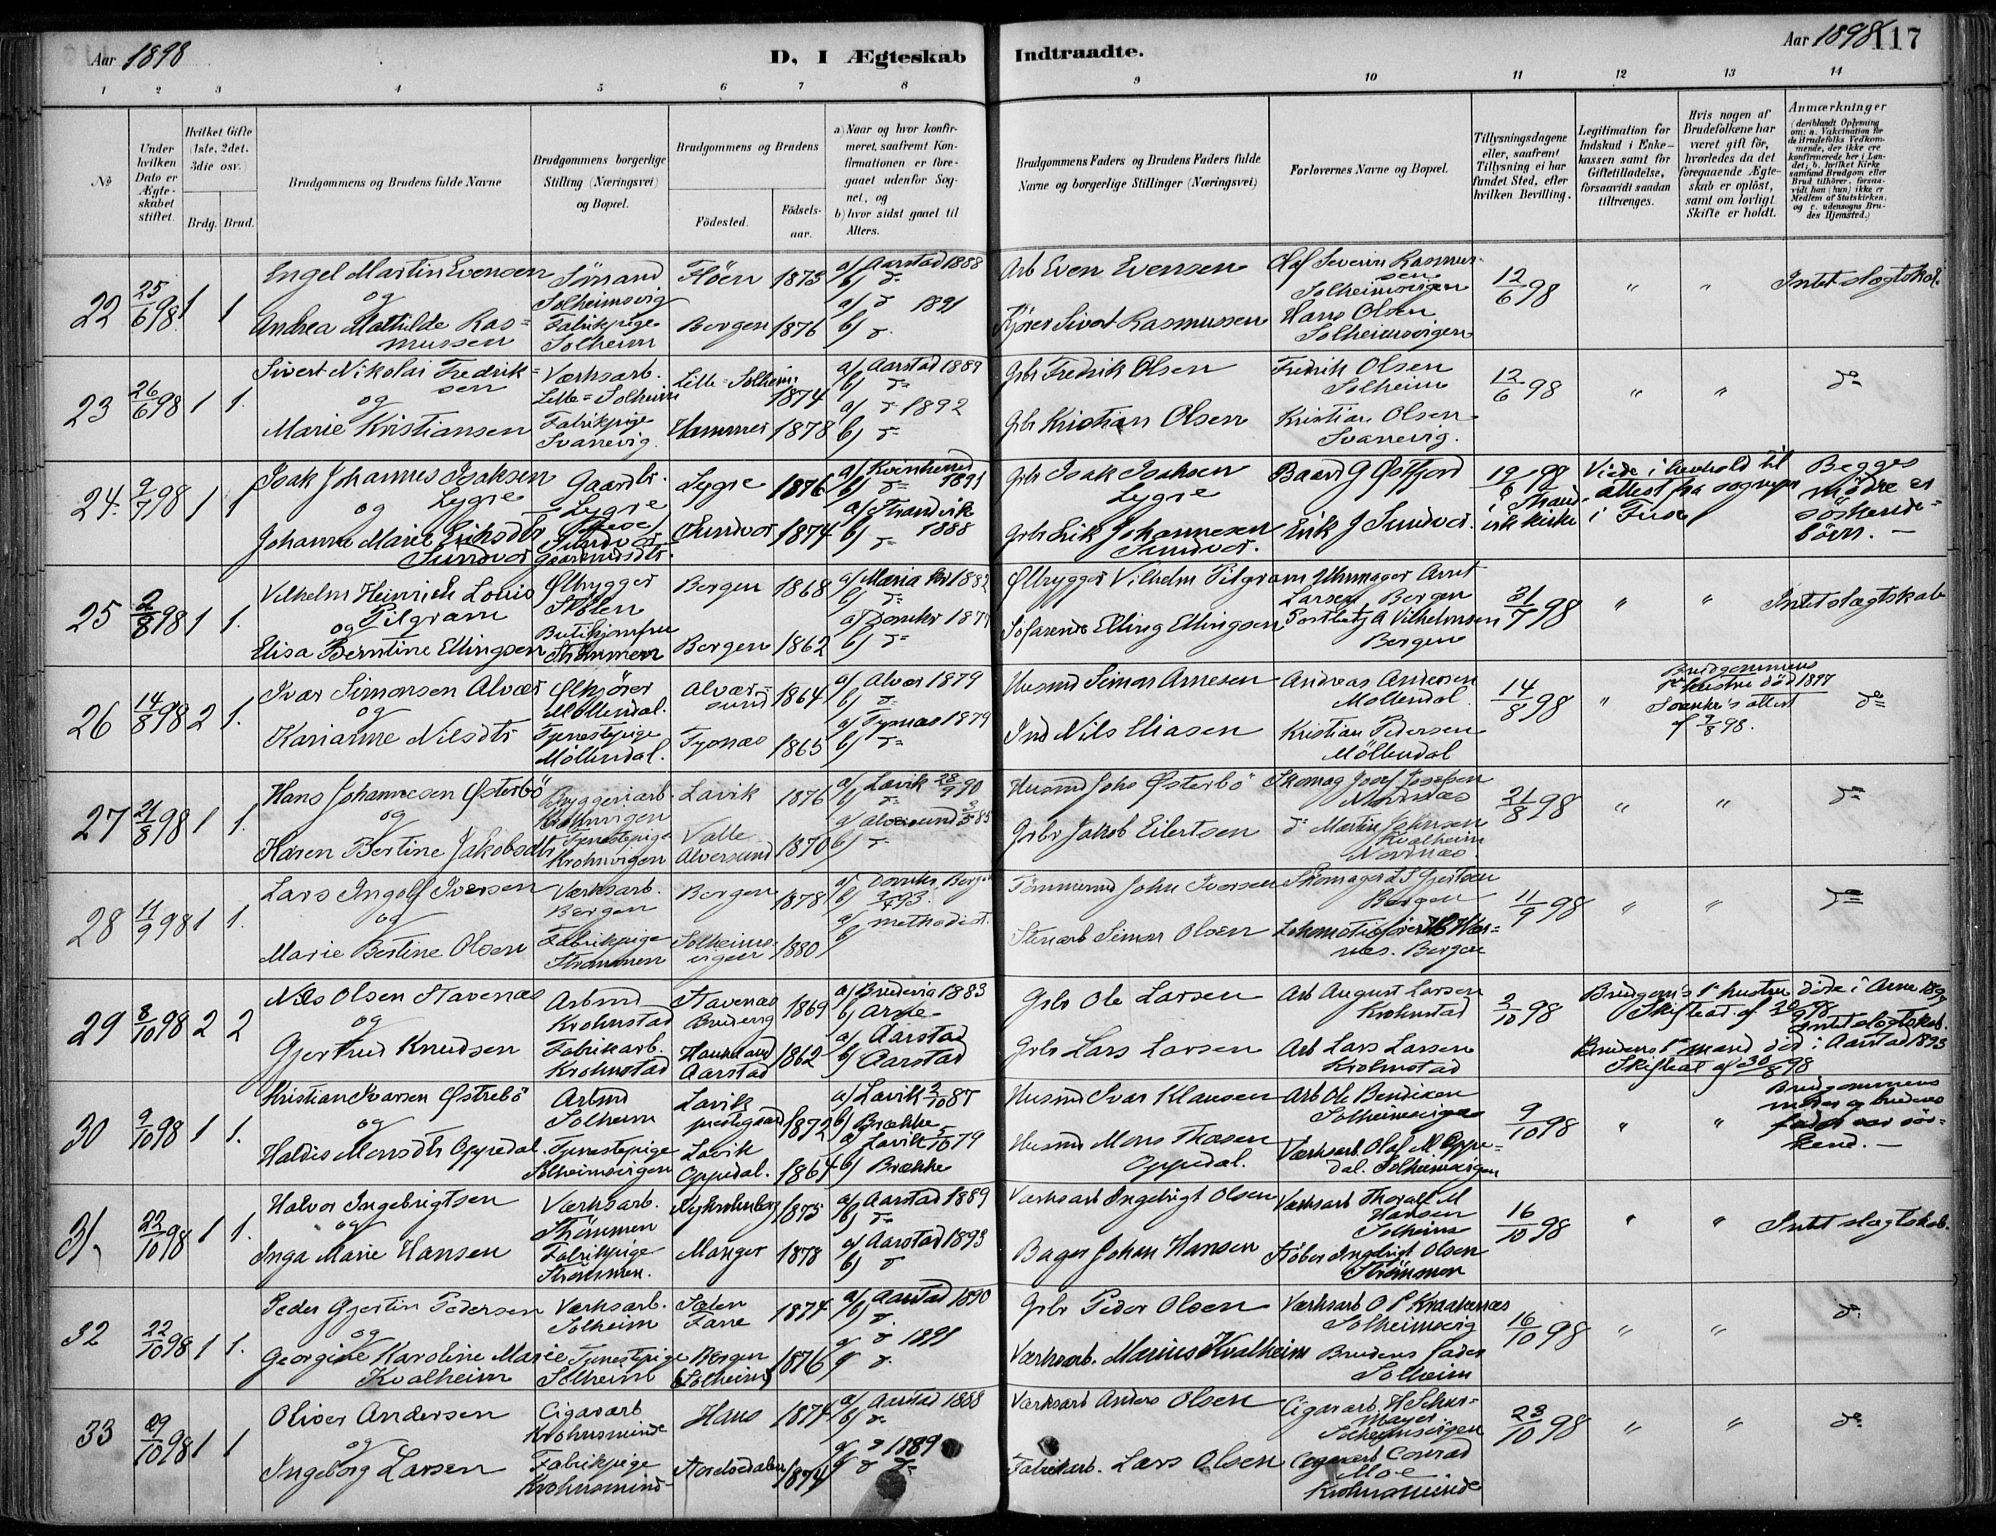 Aar 1898
D. I Ægteskab
Indtraadte.
Aar 1898
117
1 2 3 4 5 6 7 8 9 10 11 12 13 14
No
Under hvilken Dato er Ægteskabet stiftet.
Hvilket Gifte (1ste, 2det, 3die osv.)
Brdg. Brud.
Brudgommens og Brudens fulde Navne
Brudgommens borgerlige Stilling (Næringsvei) og Bopæl.
Brudgommens og Brudens
Fødested.
Fødselsaar.
a) Naar og hvor konfirmeret, saafremt Konfirmationen er foregaaet udenfor Sognet, og
b) hvor sidst gaaet til Alters.
Brudgommens Faders og Brudens Faders fulde Navne og borgerlige Stillinger (Næringsvei)
Forlovernes Navne og Bopæl.
Tillysningsdagene eller, saafremt Tillysning ei har fundet Sted, efter hvilken Bevilling.
Legitimation for Indskud i Enkekassen samt for Giftetilladelse, forsaavidt saadan tiltrænges.
Hvis nogen af Brudefolkene har været gift før, hvorledes da det foregaaende Ægteskab er opløst, samt om lovligt Skifte er holdt.
Anmærkninger
22 25/6 98 1 1
Engel Martin Evensen
og
Andrea Mathilde Rasmussen
Sömand
Solheimsvig
Fabrikpige
Solheim
Flöen 1873
Bergen 1876
a) Aarstad 1888
b) d=
a) d 1891
b) d.
Arb Even Evensen
Sivert Rasmussen
Olaf Severin Rasmussen
Solheimsvigen
Hans Olsen
Solheimsvigen
12/6 98 " " Intet slægtskab.
23 26/6 98 1 1.
Sivert Nikolai Fredriksen
og
Marie Kristiansen
Værksarb.
Lille=Solheim
Fabrikpige
Svanevig.
Lille=Solheim 1874
Hammer 1878
a) Aarstad 1889
b) d=
a) d 1892
b) d=
Grbr Fredrik Olsen
Grbr Kristian Olsen
Fredrik Olsen
Solheim
Kristian Olsen
Svanevig.
12/6 98 " " d=
24. 9/7 98 1 1
Isak Johannes Isaksen Lygre
og
Johanne Marie Eriksdtr Sundvor
Gaardbr.
Lygre
Sundvor
Gaardmandsdtr.
Lygre 1876
Sundvor 1874
a) Kvinherred 1891
b) d=
a) Strandvik 1888
b) d=
Grbr Isak Isaksen Lygre
Grbr Erik Johannesen Sundvor.
Baard G Østfjord
Erik J Sundvor.
i Strandvik kirke
Viede i henhold til attest fra sognepr i Fuse
Begges mödre er söskendebörn. —
25 2/8 98 1 1.
Vilhelm Heinrich Louis Pilgram
og
Elisa Berntine Ellingsen
Ølbrygger
Stölen
Butikjomfru
Strömmen
Bergen 1868
Bergen 1862
a) Maria kr 1882
b) d=
a) Domkr 1877
b) d=
Ølbrygger Vilhelm Pilgram
Söfarende Elling Ellingsen
Uhrmager Arnt Larsen Bergen
Postbetj A Vilhelmsen Bergen
31/7 98 " " Intet slægtskab
26 14/8 98 2 1.
Ivar Simonsen Alvær
og
Karianne Nilsdtr
Ølkjörer
Möllendal.
Tjenestepige
Möllendal.
Alværsund 1864
Tysnæs 1865
a) Alver 1879
b) d=
a) Tysnæs 1879
b) d=
Husmd Simon Arnesen
Ind Nils Eliasen
Andreas Andersen
Möllendal
Kristian Pedersen
Möllendal
14/8 98 "
Brudgommens 1e hustru död 1897
attest af 9/8 98.
d=
27 21/8 98 1 1.
Hans Johannesen Østerbö
og
Karen Bertine Jakobsdtr
Bryggeriarb
Krohnvigen
Tjenestepige
Krohnvigen
Lavik 1876
Valle Alversund 1870
a) Lavik 28/9 90
b) d=
a) Alversund 85
b) d=
Husmd Johs Østerbö
Grbr Jakob Eilertsen
Skomag Josef Josefsen
Nordnæs
d= Martin Johnsen Kvalheim
Nordnæs.
21/8 98 " " d=
28 11/9 98 1 1.
Lars Ingolf Iversen
og
Marie Bertine Olsen
Værksarb.
Bergen
Fabrikpige
Strömmen
Bergen 1878
Solheimsvigen 1880
a) Domkr. Bergen
b) 93.
a) methodist.
b)
Tömmermd John Iversen
Stenarb Simon Olsen
Skomager L S Gjertsen
Bergen
Bergen
11/9 98 " " d=
29 8/10 98 2 2
Nils Olsen Stavenæs
og
Gjertrud Knudsen
Arbmd
Krohnstad
Fabrikarb.
Krohnstad
Stavenæs
Bruvig 1869
Haukeland
Aarstad 1862
a) Bruvig 1883
b) Arne
a) Aarstad
b) Aarstad
Grbr Ole Larsen
Grbr Lars Larsen
Arb August Larsen
Krohnstad
Arb Lars Larsen
Krohnstad
2/10 98
Brudgom's 1e hustru döde i Arne 1897
Intet slægtskab.
Brudens 1e mand död i Aarstad 1893
Skifteat af 30/8 98
30 9/10 98 1 1.
Kristian Ivarsen Østrebö
og
Haldis Monsdtr Oppedal.
Arbmd
Solheim
Tjenestepige
Solheimsvigen
Lavik
prestegaard 1872
Lavik
Oppedal. 1864
a) Lavik 2/10 87
b) Brække
a) Lavik 5/10 79
b) Brække
Husmd Ivar Klausen
Husmd Mons Thoesen Oppedal.
Arb Ole Bendiksen
Solheimsvigen
Værksarb. Olaf M. Oppedal. Solheimsvigen
9/10 98 " "
Brudgommens moder og brudens fader var söskend. —
31. 22/10 98 1 1.
Halvor Ingebrigtsen
og
Inga Marie Hansen
Værksarb.
Strömmen
Fabrikpige
Strömmen.
Nykrohnborg 1875
Manger 1878
a) Aarstad 1889
b) d=
a) Aarstad 1893
b) d
Værksarb Ingebrigt Olsen
Bager Johan Hansen
Værksarb Thorald M Hansen
Solheim
Stöber Ingebrigt Olsen
Strömmen
16/10 98 " " Intet slægtskab.
32 22/10 98 1 1.
Peder Gjertin Pedersen
og
Georgine Karoline Marie Kvalheim
Værksarb.
Solheim
Tjenestepige
Solheim
Sælen
Fane 1874
Bergen
(Solheim) 1876
a) Aarstad 1890
b) d.
a) d 1891
b) d.
Grbr Peder Olsen
Værksarb. Marius Kvalheim
Værksarb O P Kraakenæs
Solheimsvig
Brudens fader
Solheim
16/10 98 " " d=
33 29/10 98 1 1
Oliver Andersen
og
Ingeborg Larsen
Cigararb
Krohnsminde
Fabrikpige
Krohnsminde
Haus 1874
1874
a) Aarstad 1888
b) d=
a) d 1889
b) d
Værksarb Anders Olsen
Fabrikarb. Lars Olsen
Cigararb. H Schurmayer
Solheimsvigen
Cigararb Conrad Moe.
Krohnsminde
23/10 98 " " d=